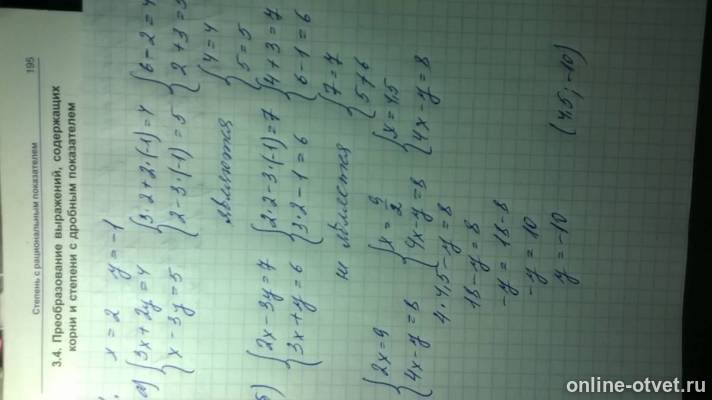 Степень с рациональным показателем 195
3.4. Преобразование выражений, содержащих
корни и степени с дробным показателем
x = 2 y = -1
а) {3x + 2y = 4 {3·2 + 2·(-1) = 4 {6 - 2 = 4
{x - 3y = 5 {2 - 3·(-1) = 5 {2 + 3 = 5
{4 = 4
{5 = 5
является
б) {2x - 3y = 7 {2·2 - 3·(-1) = 7 {4 + 3 = 7
{3x + y = 6 {3·2 - 1 = 6 {6 - 1 = 6
{7 = 7
{5 ≠ 6
не является
{2x = 9 {x = 9/2 {x = 4,5
{4x - y = 8 {4x - y = 8 {4x - y = 8
4·4,5 - y = 8
18 - y = 8
-y = 18 - 8
-y = 10
y = -10
(4,5; -10)
online-otvet.ru